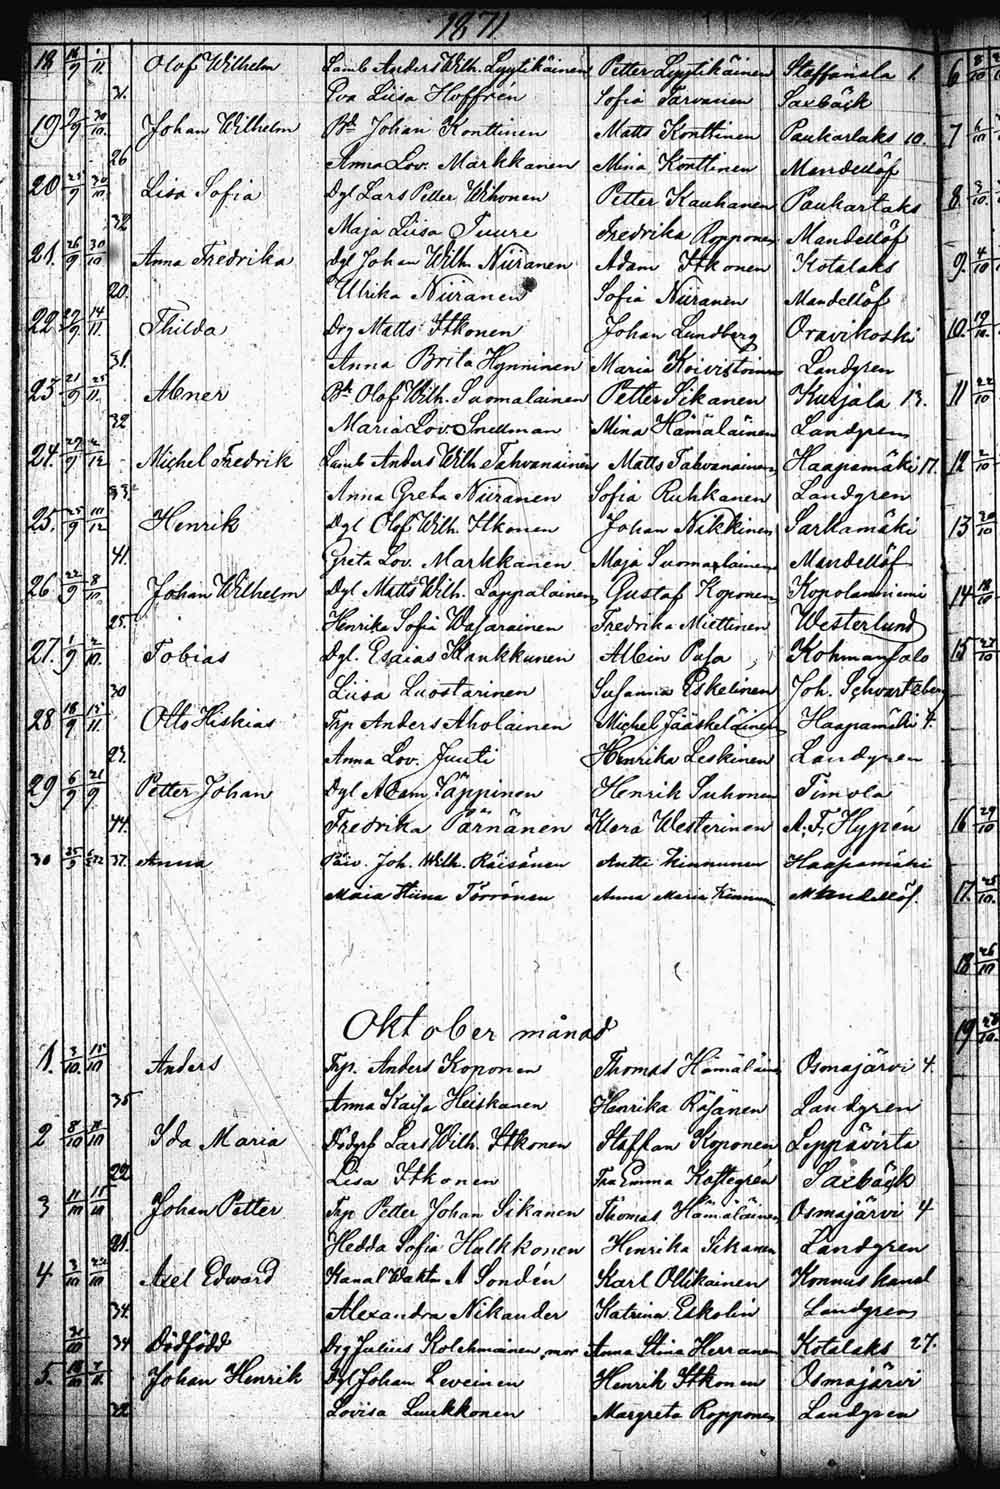 1871
18 16/9 1/11. Olof Wilhelm Lamb Anders Wilh. Lyytikäinen Petter Lyytikäinen Staffansla 1. 6
31. Eva Liisa Hoffrén Sofia Tarvanen Saxbäck
19 9/9 30/10. Johan Wilhelm Bd Johan Konttinen Matts Konttinen Paukarlaks 10. 7
26 Anna Lov. Markkanen Mina Konttinen Mandellöf
20 25/9 30/10 Lisa Sofia Dgl Lars Petter Wihonen Petter Kauhanen Paukarlaks 8 3/10.
32 Maja Liisa Tuure Fredrika Ropponen Mandellöf
21. 26/9 30/10 Anna Fredrika Dgl Johan Wilh. Niiranen Adam Itkonen Kotalaks 9. 4/10
20. Ulrika Niiranen Sofia Niiranen Mandellöf
22 27/9 14/11. Thilda Drg Matts Itkonen Johan Lundberg Oravikoski 10. 19/10.
31. Anna Brita Hynninen Maria Koivistoinen Landgren
23 21/9 25/11. Abner Bd Olof Wilh. Suomalainen Petter Sikanen Kurjala 13. 11 22/10
32 Maria Lov. Snellman Mina Hämäläinen Landgren
24. 27/9 2/12 Michel Fredrik Lamb Anders Wilh. Tahvanainen Matts Tahvanainen Haapamäki 17. 12 2/10
33. Anna Greta Niiranen Sofia Ruhkanen Landgren
25. 25/9 10/12 Henrik Dgl Olof Wilh. Itkonen Johan Nikkinen Sarkamäki 13 20/10
41. Greta Lov. Markkanen Maja Suomalainen Mandellöf
26 22/9 8/10 Johan Wilhelm Dgl Matts Wilh. Lappalainen Gustaf Koponen Kopolanniemi 14 18/10
25. Henrika Sofia Wasarainen Fredrika Miettinen Westerlund
27. 1/9 2/10. Tobias Dgl. Esaias Kankkunen Albin Pasa Kohmansalo 15 27/10
30 Liisa Luostarinen Susanna Eskelinen Joh. Schvartzberg
28 18/9 15/11. Otto Hiskias Trp Anders Aholainen Michel Jääskeläinen Haapamäki 4.
23. Anna Lov. Juuti Henrika Leskinen Landgren
29 6/9 21/9. Petter Johan Dgl Adam Käppinen Henrik Suhonen Timola
44. Fredrika Pärnänen Klara Westerinen A. F. Hypén 16 29/10
30 25/9 37. Anna Päiv. Joh. Wilh. Räisänen Antti Kinnunen Haapamäki
Maia Stiina Törrönen Anna Maria Kinnunen Mandellöf. 17. 25/10.
18 26/10
Oktober månad 19 28/10.
1. 3/10. 15/10 Anders Trp. Anders Koponen Thomas Hämäläinen Osmajärvi 4.
35 Anna Kaisa Heiskanen Henrika Räsänen Landgren
2 8/10 11/10 Ida Maria Lars Wilh. Itkonen Staffan Koponen Leppävirta
22 Lisa Itkonen Fru Emma Kastegrén Saxbäck
3 11/10 15/10 Johan Petter Trp Petter Johan Sikanen Thomas Hämäläinen Osmajärvi 4
21. Hedda Sofia Hulkkonen Henrika Sikanen Landgren
4 3/10 22/10 Axel Edward Kanal Waktm A Sondén Karl Ollikainen Konnus kanal
34. Alexandra Nikander Katrina Eskolin Landgren
31/10 34 Dödfödd Drg Julius Kolehmainen, mor Anna Stina Herranen Kotalaks 27.
5. 18/10 7/11. Johan Henrik Dgl Johan Leveinen Henrik Itkonen Osmajärvi
32 Lovisa Luukkonen Margreta Ropponen Landgren